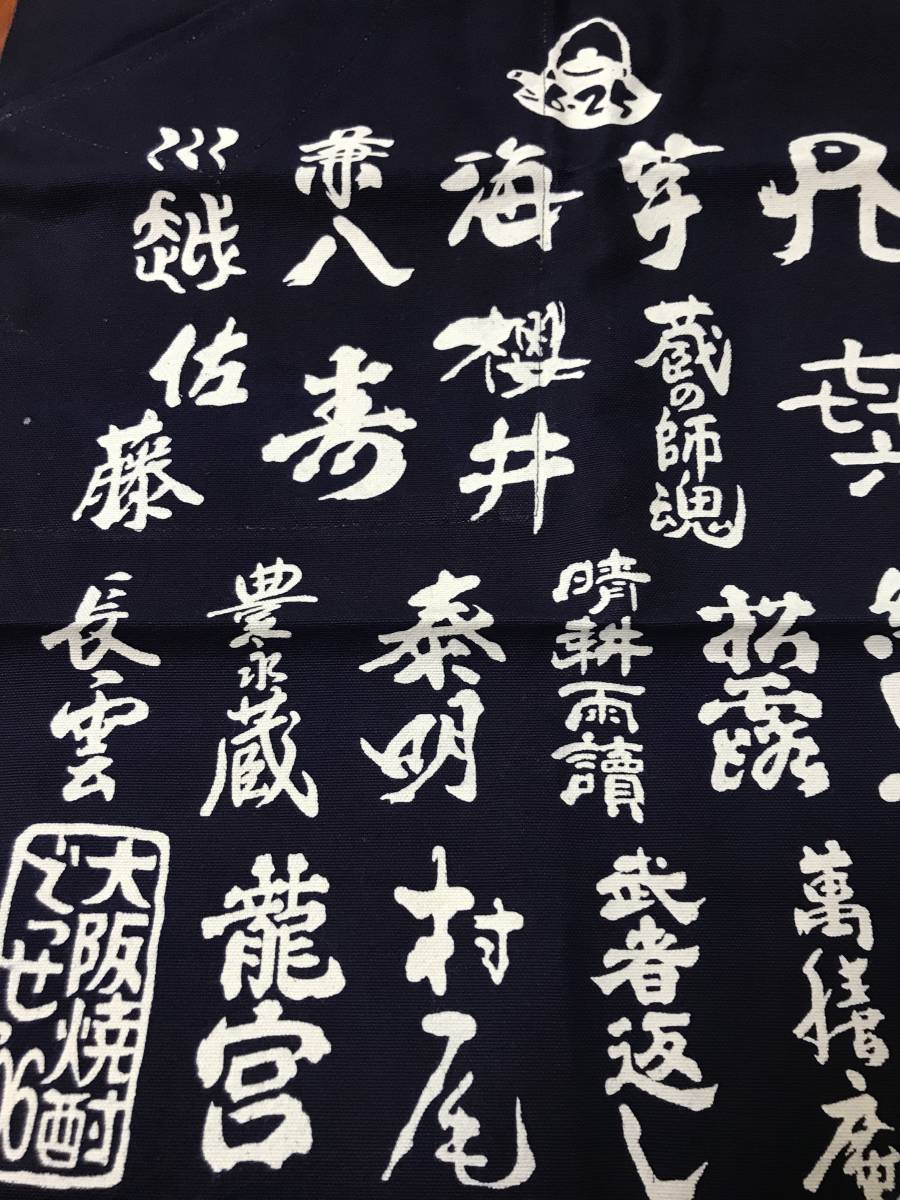 芋
海
兼八
川越
㐂六
蔵の師魂
櫻井
寿
佐藤
松露
晴耕雨讀
泰明
豊永蔵
長雲
萬膳庵
武者返し
村尾
龍宮
大阪焼酎
でっせ'06